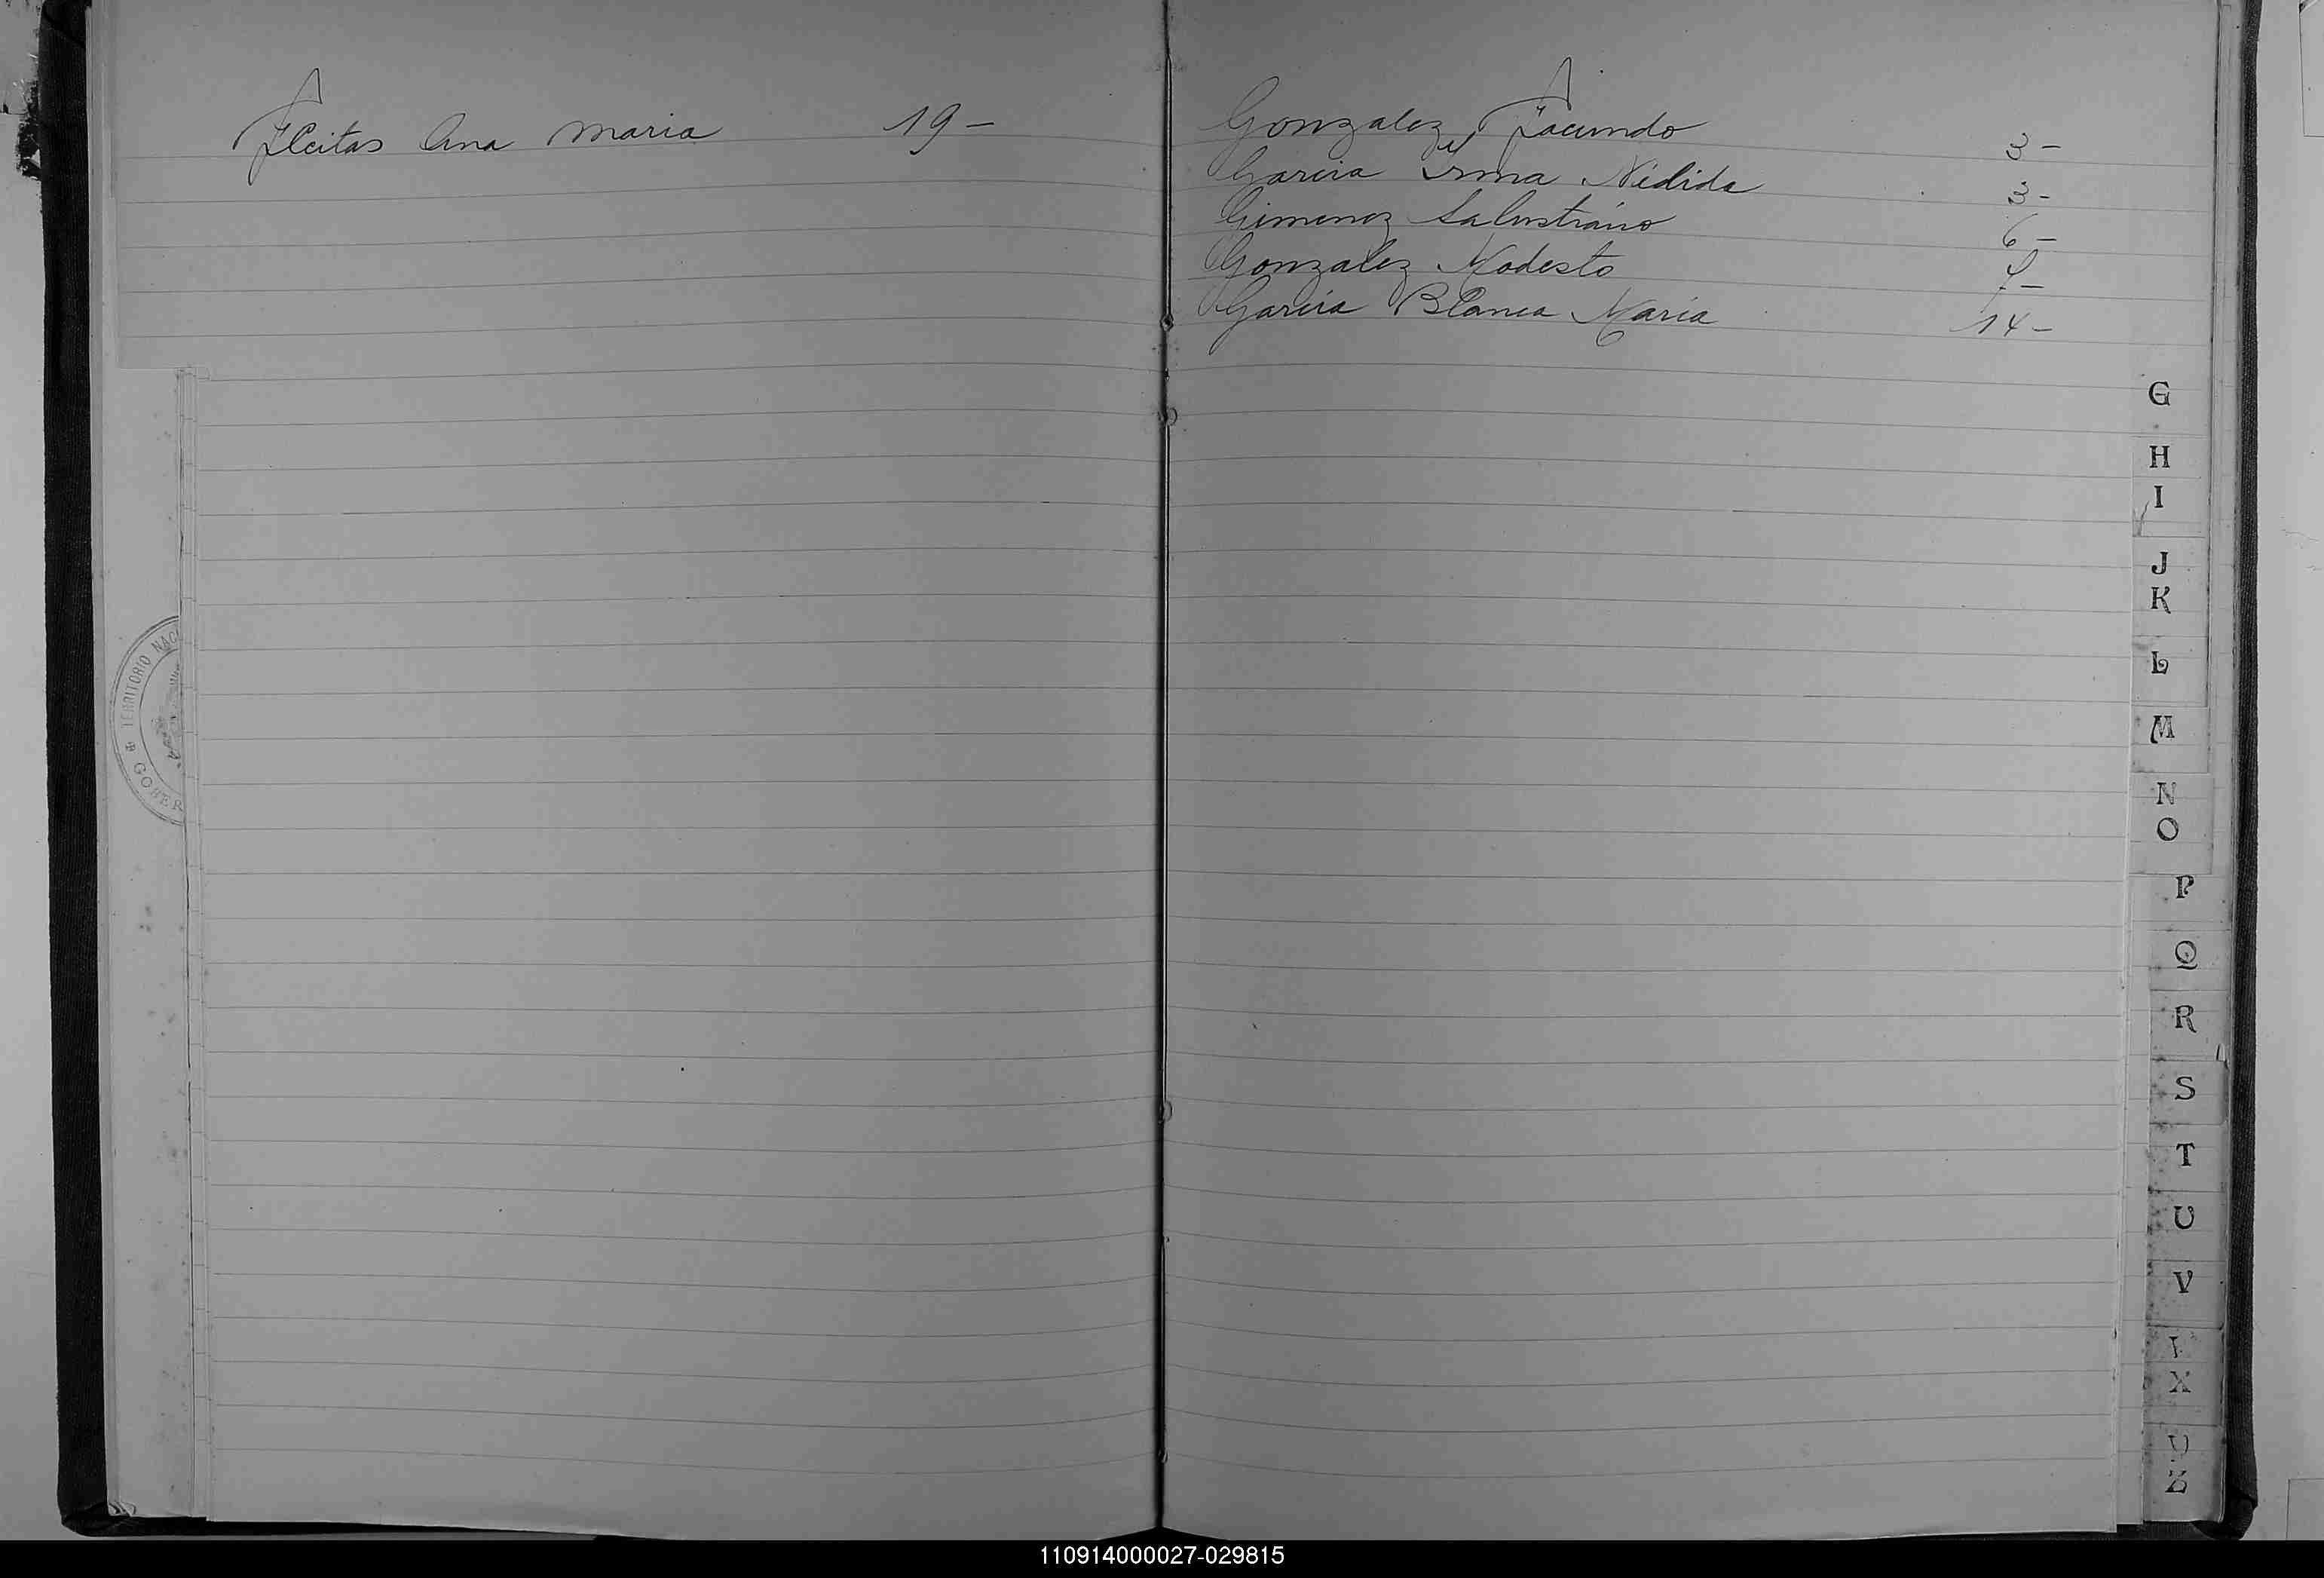 Fleitas Ana Maria 19-
Gonzalez, Facundo 3-
Garcia Irma Nélida 3-
Gimenez Salustiano 6-
Gonzalez Modesto
Garcia Blanca Maria 14-
G
H
I
J
K
L
M
N
O
P
Q
R
S
T
U
V
X
Y
Z
TERRITORIO NAC
GOBER
110914000027-029815